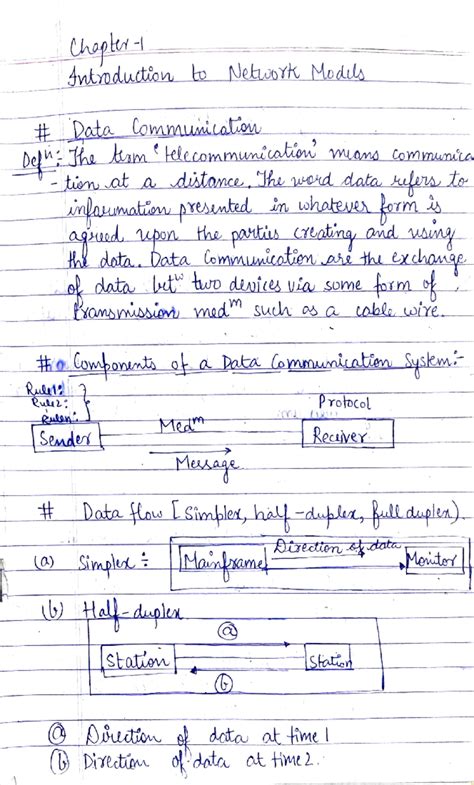 Chapter-1
Introduction to Network Models
# Data Communication
Defⁿ: The term 'telecommunication' means communica
-tion at a distance. The word data refers to
information presented in whatever form is
agreed upon the parties creating and using
the data. Data Communication are the exchange
of data betʷ two devices via some form of
transmission medᵐ such as a cable wire.
# Components of a Data Communication System:-
Rule1:
Rule2:
Rulen:
Protocol
Sender
Medᵐ
Receiver
Message
# Data flow [Simplex, half-duplex, full duplex).
(a) Simplex :
Mainframe
Direction of data
Monitor
(b) Half-duplex
(a)
Station
Station
(b)
(a) Direction of data at time 1
(b) Direction of data at time 2.